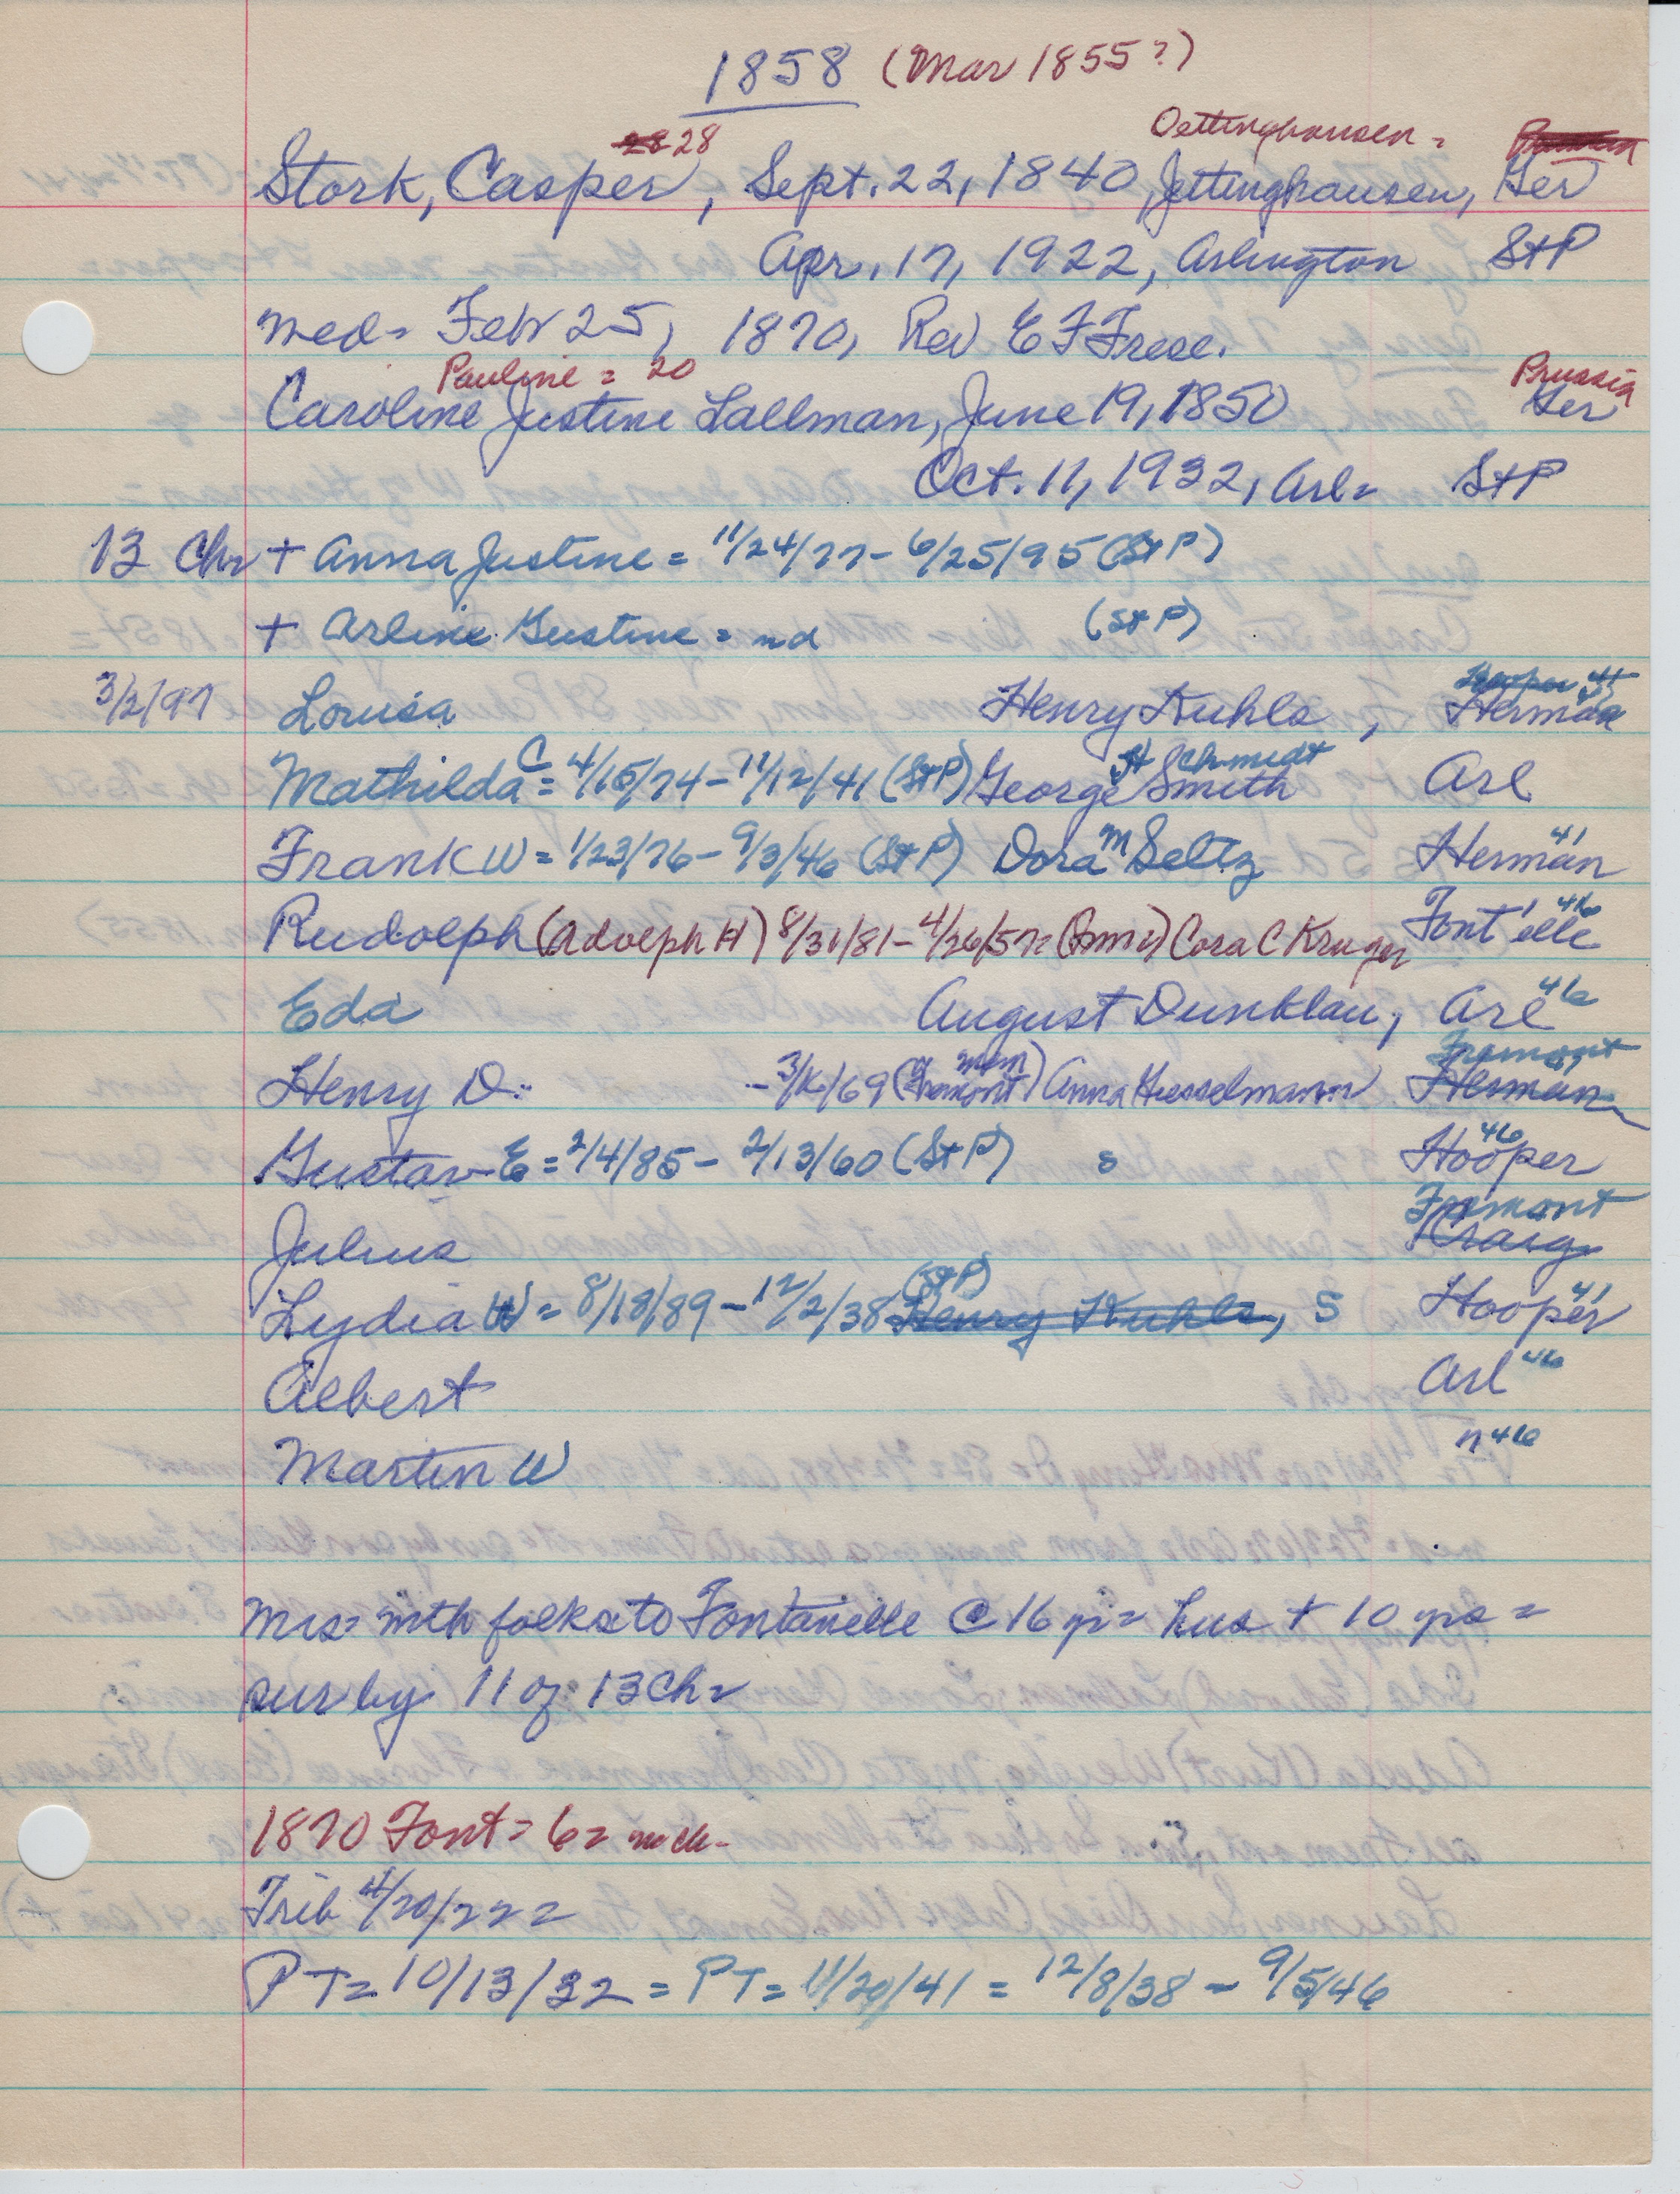 1858 (Mar 1855?)
28 28 Oettinghausen =
Stork, Casper, Sept. 22, 1840, Jettinghausen, Ger
Apr. 17, 1922, Arlington St P
med= Feb 25, 1870, Rev E F Frese.
Pauline = 20 Prussia
Caroline Justine Lallman, June 19, 1850 Ger
Oct. 11, 1932, Arl= St P
13 Ch= + Anna Justine = 11/24/77 - 6/25/95 (St P)
+ Arline Gustine = nd (St P)
Hooper 41
3/2/97 Louisa Henry Kuhls, Herman
C H Schmidt
Mathilda = 4/15/74 - 11/12/41 (St P) George Smith Arl
Frank W = 1/23/76 - 9/3/46 (St P) Dora M Seltz Herman 41
Rudolph (Adolph H) 8/31/81 - 4/26/57= Cora C Kruger Font'elle 46
Eda August Dunklau, Arl 46
mem Fremont
Henry D. - 3/16/69 (Fremont) Anna Husselmann Herman
Gustav E = 2/4/85 - 2/13/60 (St P) s Hooper 46
Fremont
Julius Craig
(St P)
Lydia W = 8/18/89 - 12/2/38 Henry Kuhls, S Hooper 41
Albert Arl 46
Martin W " 46
Mrs= with folks to Fontanelle @ 16 yr= hus + 10 yrs =
sur by 11 of 13 Ch=
1870 Font= 6= no ch-
Trib 4/20/22=
PT= 10/13/32 = PT= 11/20/41 = 12/8/38 - 9/5/46